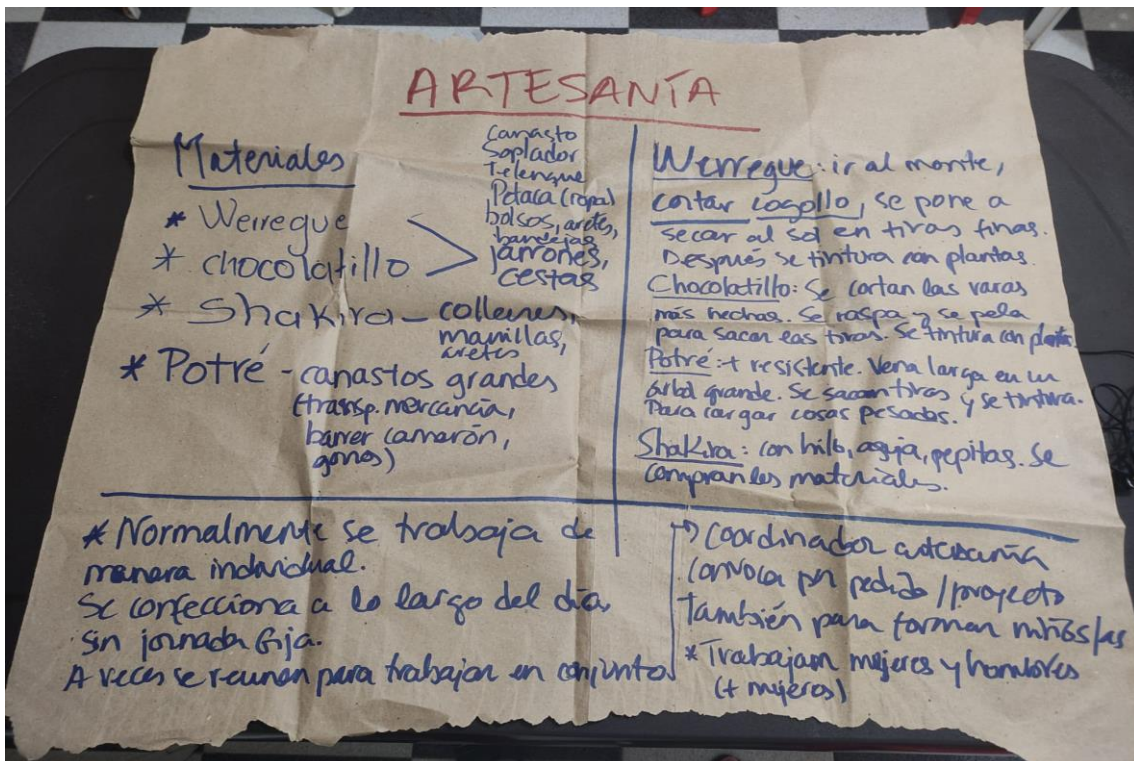 ARTESANÍA
Materiales
* Werregue
* chocolatillo
Canasto
Soplador
Telenque
Petaca (ropa)
bolsos, aretes,
bandejas
jarrones,
cestas
* Shakira - collares,
manillas,
aretes
* Potré - canastos grandes
(transp. mercancía,
barrer camarón,
gones)
Werregue: ir al monte,
cortar cogollo, se pone a
secar al sol en tiras finas.
Después se tintura con plantas.
Chocolatillo: Se cortan las varas
más hechas. Se raspa y se pela
para sacar las tiras. Se tintura con plantas.
Potré: + resistente. Vena larga en un
árbol grande. Se sacan tiras y se tintura.
Para cargar cosas pesadas.
Shakira: con hilo, aguja, pepitas. Se
compran los materiales.
* Normalmente se trabaja de
manera individual.
Se confecciona a lo largo del día,
sin jornada fija.
A veces se reunen para trabajar en conjunto
→ Coordinador artesanía
convoca por pedido/proyecto
También para formar niños/as
* Trabajan mujeres y hombres
(+ mujeres)